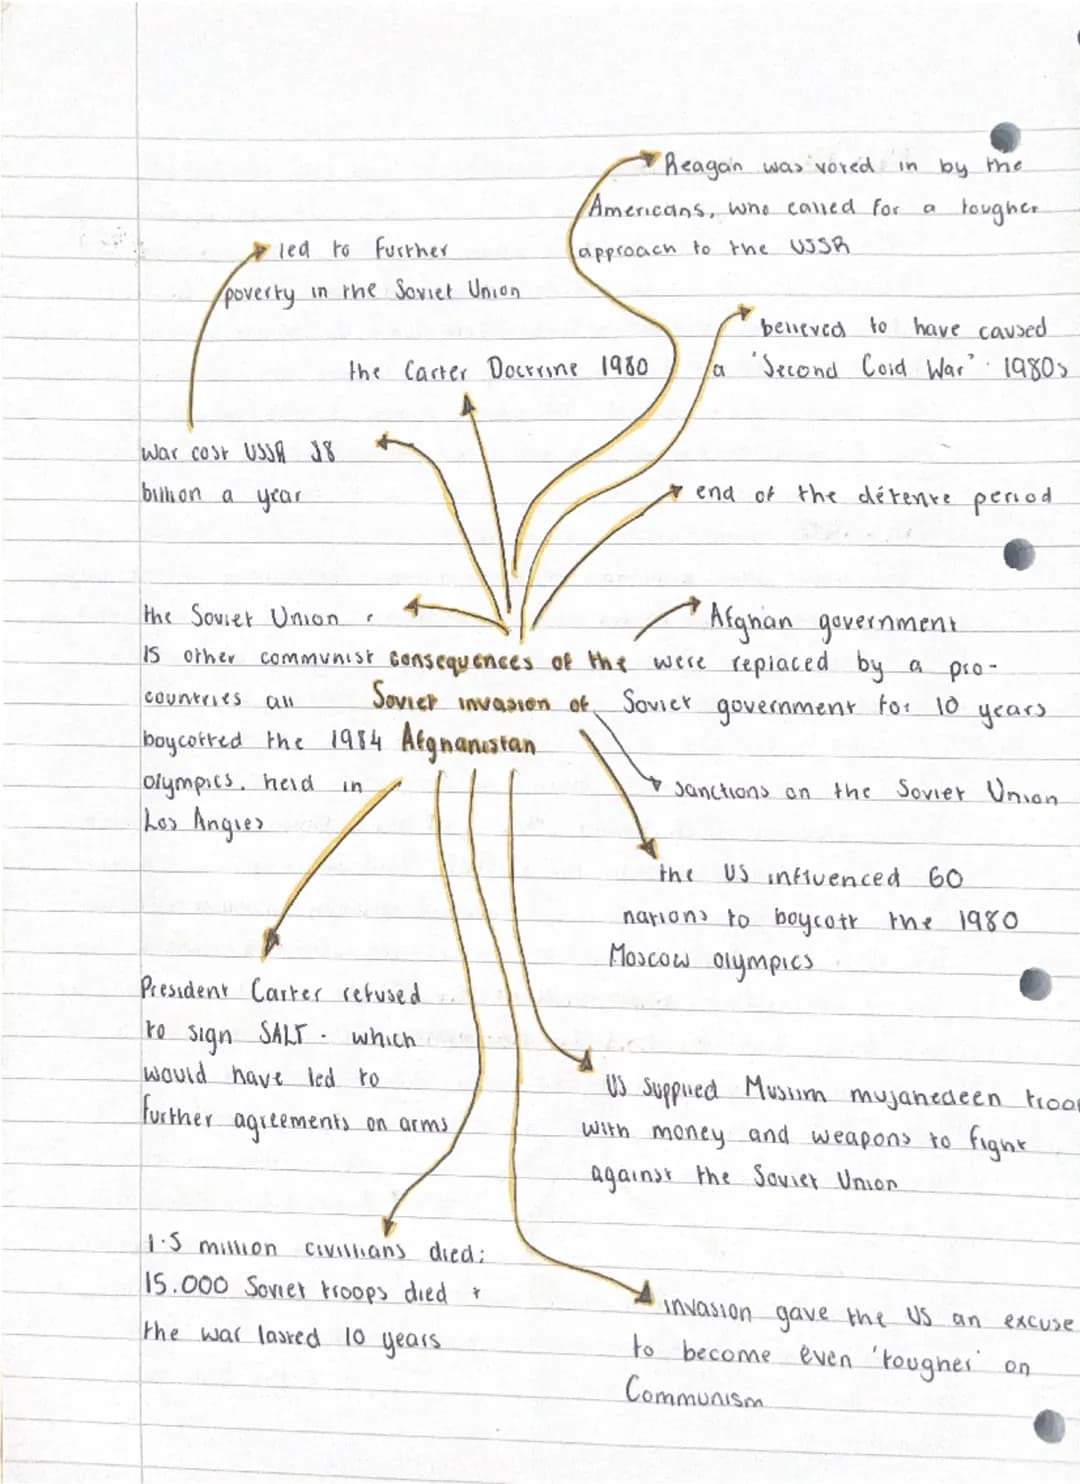 Reagan was voted in by the
Americans, who called for a tougher
approach to the USSR
led to further
poverty in the Soviet Union
believed to have caused
a 'Second Cold War' · 1980s
the Carter Doctrine 1980
War cost USSR $8
billion a year
end of the détente period
the Soviet Union +
15 other communist
countries all
boycotted the 1984
olympics, held in
Los Angles
consequences of the
Soviet invasion of
Afghanistan
Afghan government
were replaced by a pro-
Soviet government for 10 years
sanctions on the Soviet Union
the US influenced 60
nations to boycott the 1980
Moscow olympics
President Carter refused
to sign SALT - which
would have led to
further agreements on arms
US supplied Muslim mujahedeen troop
with money and weapons to fight
against the Soviet Union
1.5 million civillians died;
15,000 Soviet troops died +
the war lasted 10 years
invasion gave the US an excuse
to become even 'tougher' on
Communism